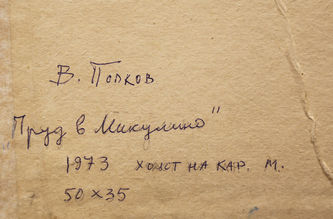 В. Попков
Пруд в Микулино"
1973 холст на кар. м.
50 x 35